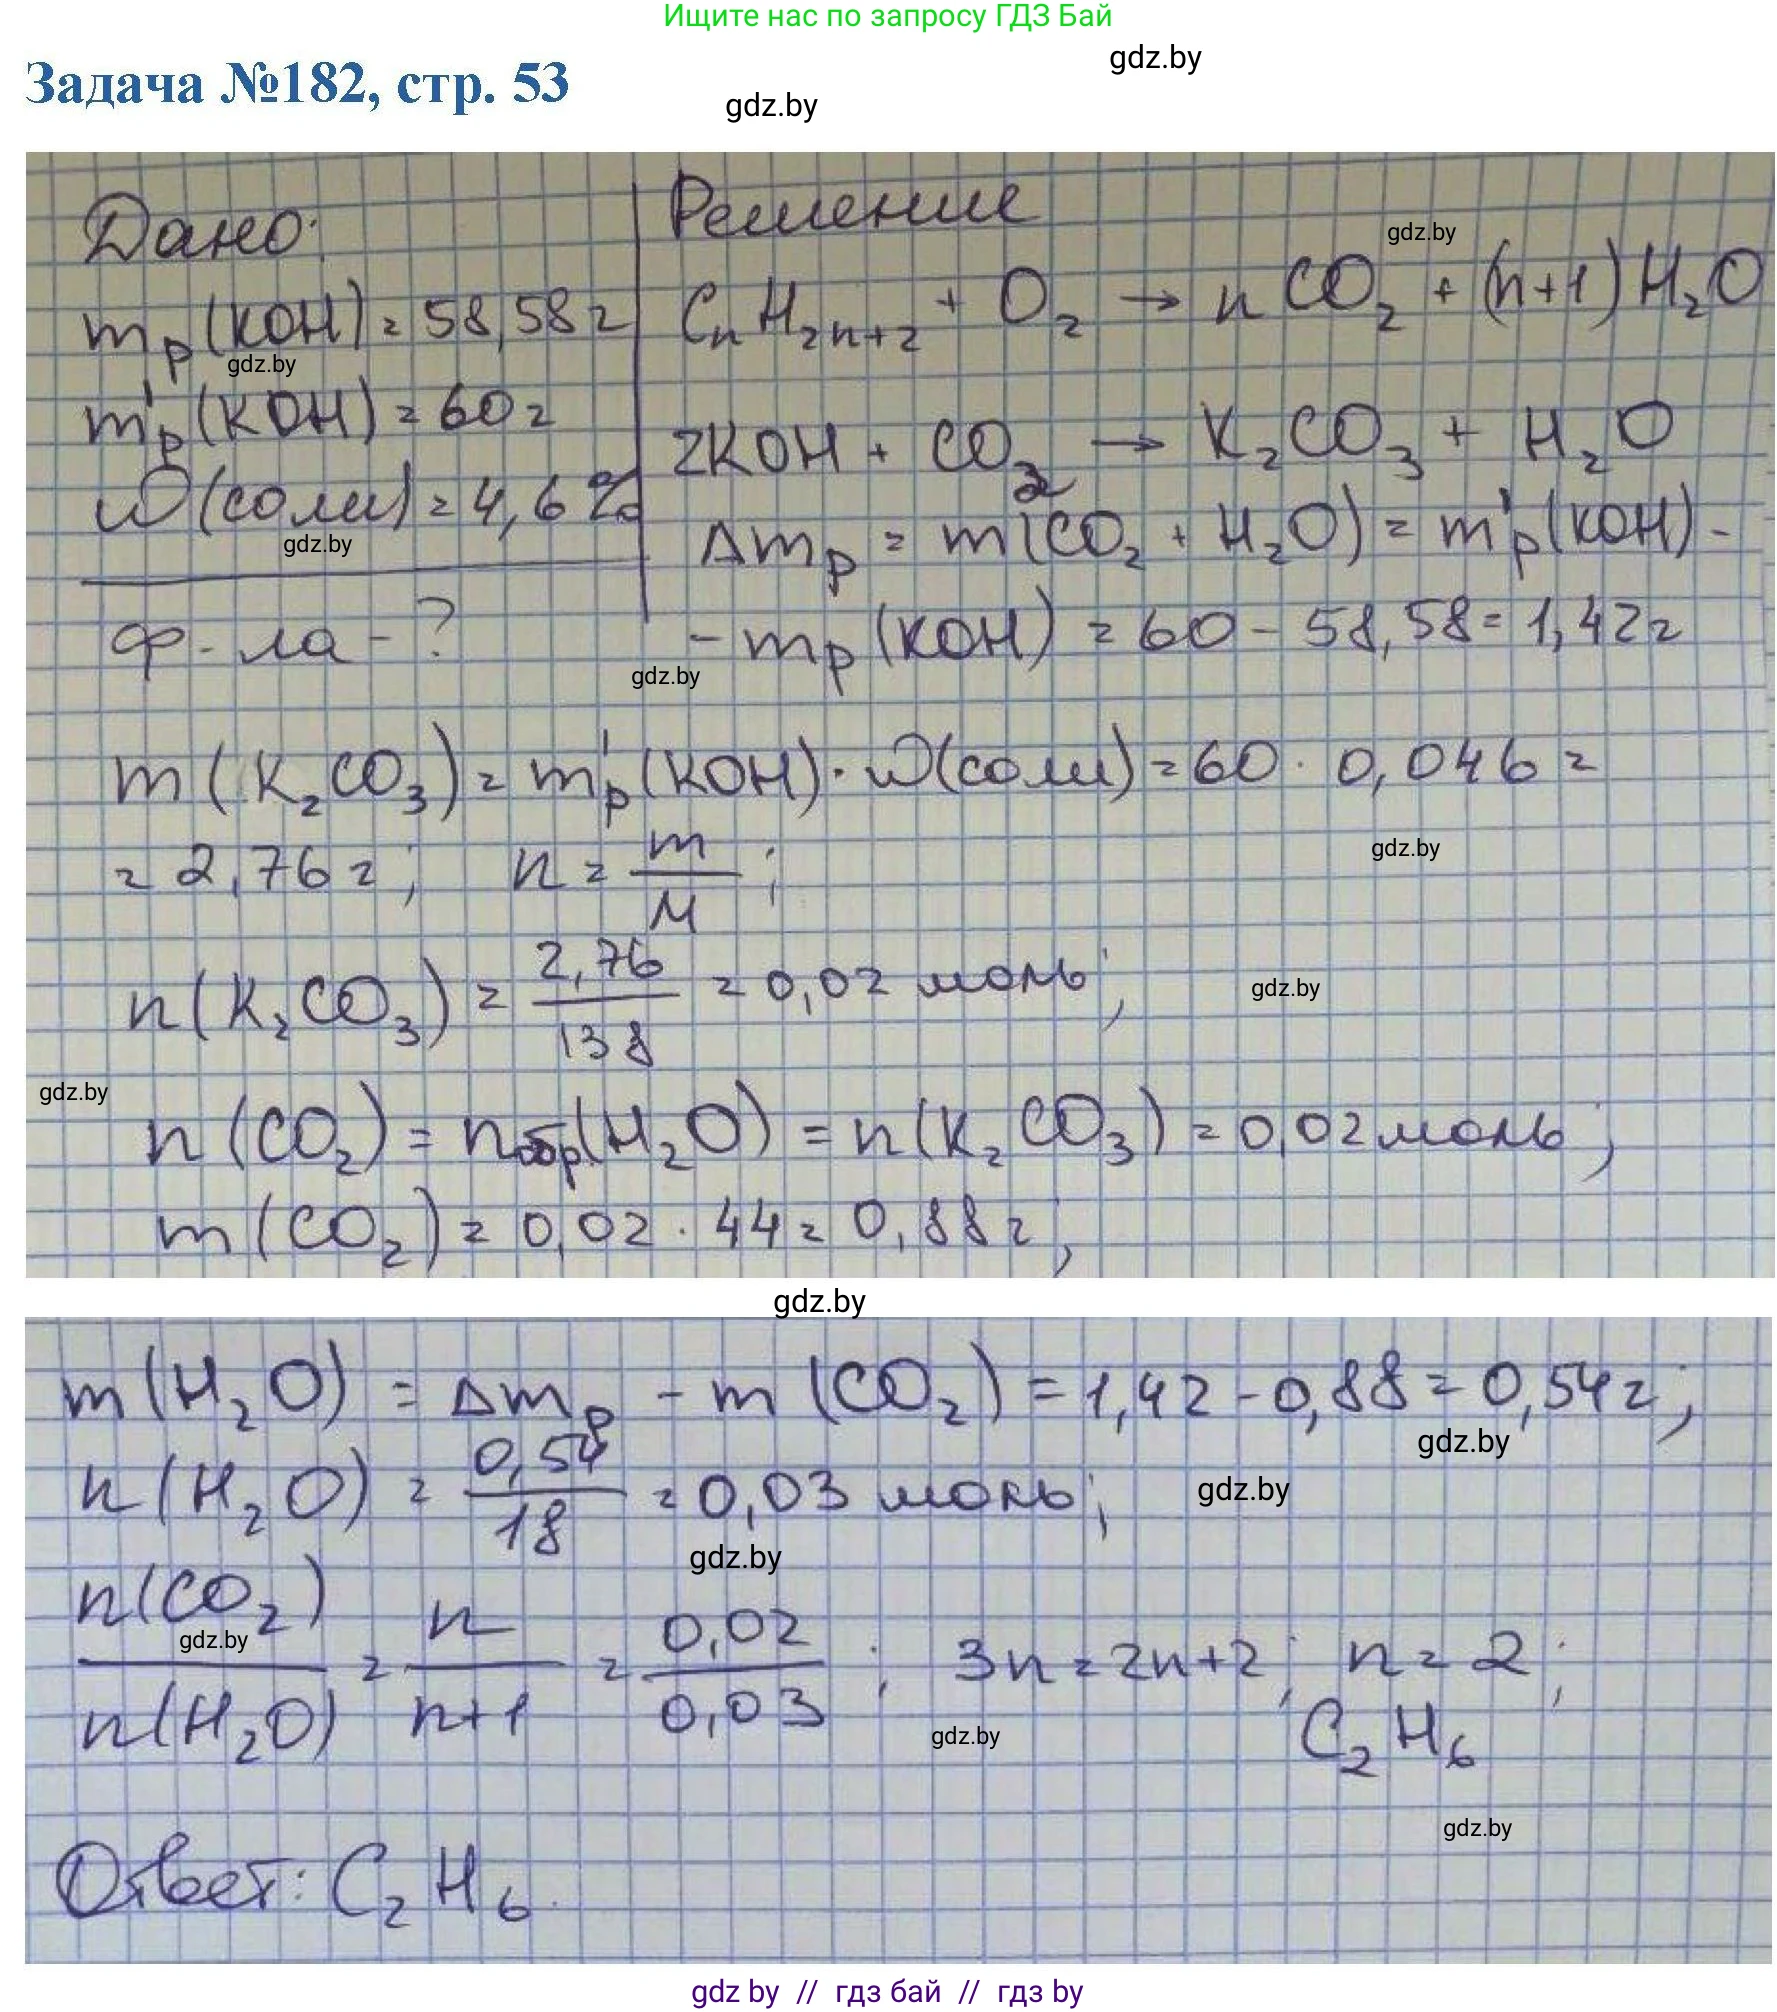 Ищите нас по запросу ГДЗ Бай
gdz.by
Задача №182, стр. 53
gdz.by
Дано:
mр(KOH) = 58,58 г
gdz.by
m'р(KOH) = 60 г
ω(соли) = 4,6 %
gdz.by
ф-ла - ?
Решение
gdz.by
CnH2n+2 + O2 → nCO2 + (n+1)H2O
2KOH + CO2 → K2CO3 + H2O
Δmр = m(CO2 + H2O) = m'р(KOH) -
- mр(KOH) = 60 - 58,58 = 1,42 г
gdz.by
m(K2CO3) = m'р(KOH) · ω(соли) = 60 · 0,046 =
= 2,76 г; n = m/M;
gdz.by
n(K2CO3) = 2,76/138 = 0,02 моль;
gdz.by
gdz.by
n(CO2) = nобр(H2O) = n(K2CO3) = 0,02 моль;
m(CO2) = 0,02 · 44 = 0,88 г;
gdz.by
m(H2O) = Δmр - m(CO2) = 1,42 - 0,88 = 0,54 г;
gdz.by
n(H2O) = 0,54/18 = 0,03 моль;
gdz.by
gdz.by
n(CO2)/n(H2O) = n/n+1 = 0,02/0,03; 3n = 2n+2; n = 2;
gdz.by
C2H6
gdz.by
gdz.by
Ответ: C2H6.
gdz by // гдз бай // гдз by